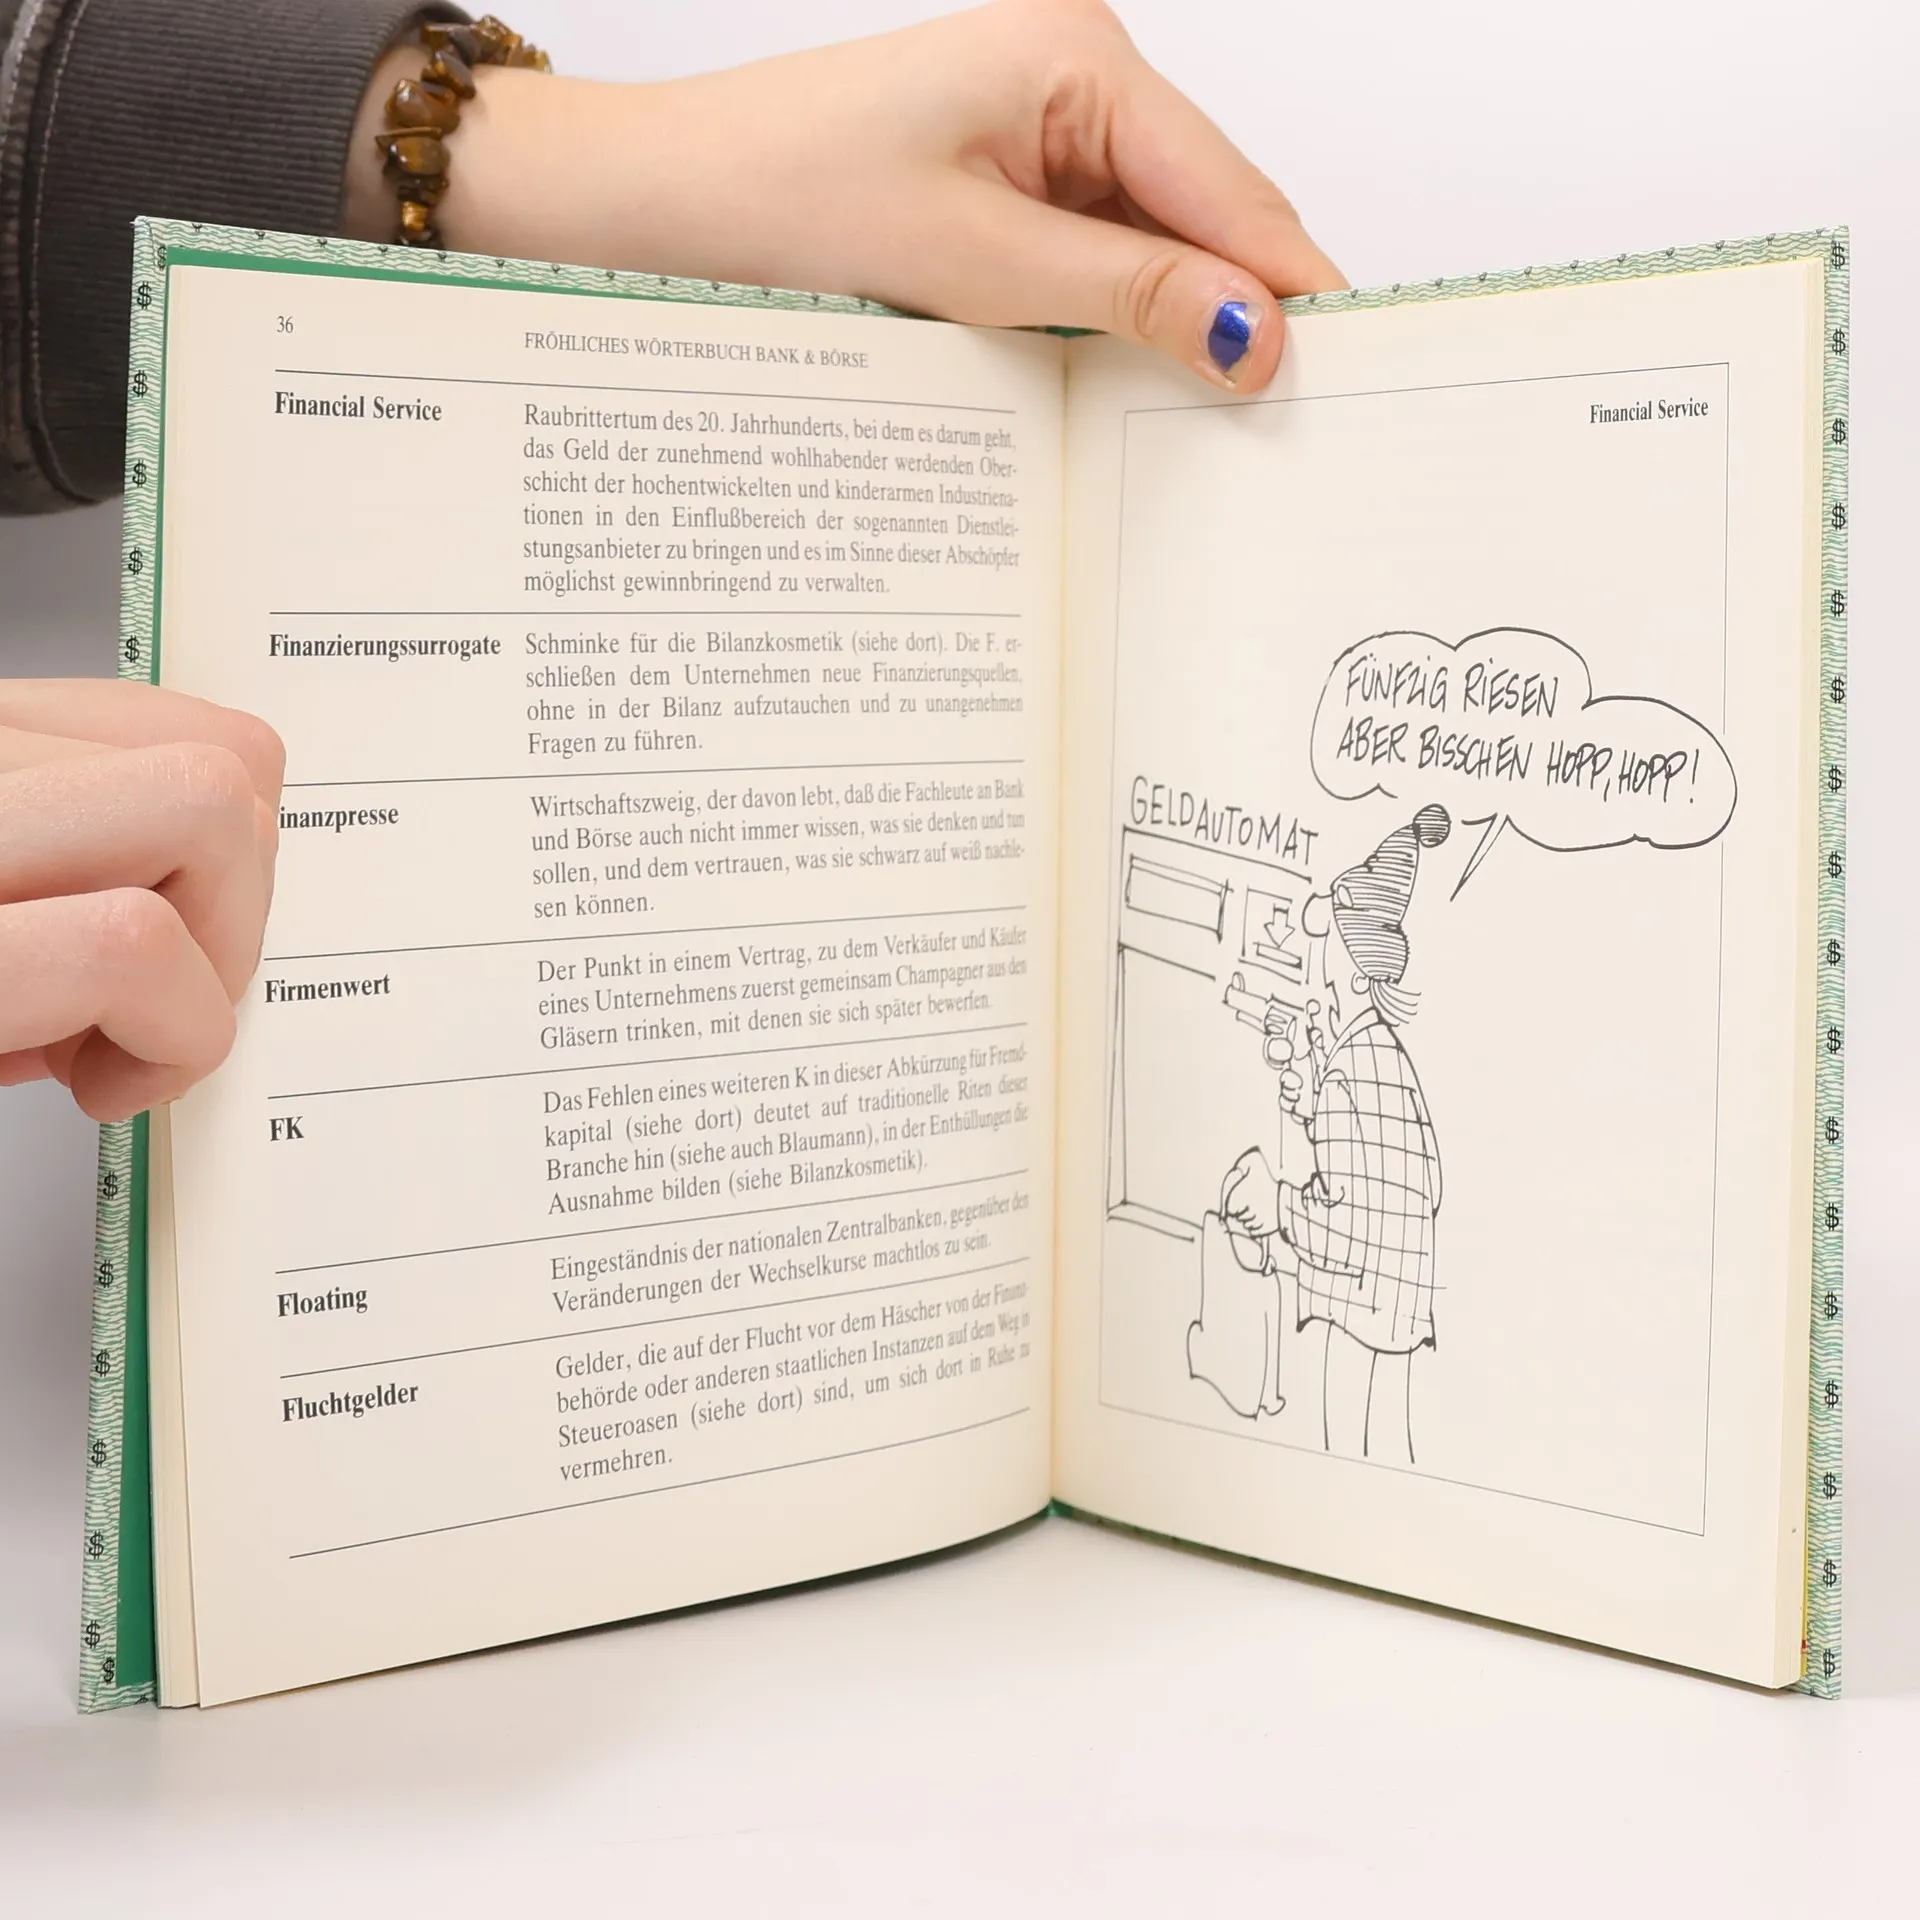 36
FRÖHLICHES WÖRTERBUCH BANK & BÖRSE
Financial Service
Raubrittertum des 20. Jahrhunderts, bei dem es darum geht,
das Geld der zunehmend wohlhabender werdenden Ober-
schicht der hochentwickelten und kinderarmen Industriena-
tionen in den Einflußbereich der sogenannten Dienstlei-
stungsanbieter zu bringen und es im Sinne dieser Abschöpfer
möglichst gewinnbringend zu verwalten.
Finanzierungssurrogate
Schminke für die Bilanzkosmetik (siehe dort). Die F. er-
schließen dem Unternehmen neue Finanzierungsquellen,
ohne in der Bilanz aufzutauchen und zu unangenehmen
Fragen zu führen.
inanzpresse
Wirtschaftszweig, der davon lebt, daß die Fachleute an Bank
und Börse auch nicht immer wissen, was sie denken und tun
sollen, und dem vertrauen, was sie schwarz auf weiß nachle-
sen können.
Firmenwert
Der Punkt in einem Vertrag, zu dem Verkäufer und Käufer
eines Unternehmens zuerst gemeinsam Champagner aus den
Gläsern trinken, mit denen sie sich später bewerfen.
FK
Das Fehlen eines weiteren K in dieser Abkürzung für Fremd-
kapital (siehe dort) deutet auf traditionelle Riten dieser
Branche hin (siehe auch Blaumann), in der Enthüllungen die
Ausnahme bilden (siehe Bilanzkosmetik).
Floating
Eingeständnis der nationalen Zentralbanken, gegenüber den
Veränderungen der Wechselkurse machtlos zu sein.
Fluchtgelder
Gelder, die auf der Flucht vor dem Häscher von der Finanz-
behörde oder anderen staatlichen Instanzen auf dem Weg in
Steueroasen (siehe dort) sind, um sich dort in Ruhe zu
vermehren.
Financial Service
FÜNFZIG RIESEN
ABER BISSCHEN HOPP, HOPP!
GELDAUTOMAT